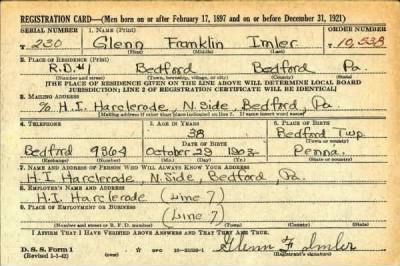 REGISTRATION CARD—(Men born on or after February 17, 1897 and on or before December 31, 1921)
SERIAL NUMBER 1. NAME (Print) ORDER NUMBER
T 230 Glenn Franklin Imler 10,538
(First) (Middle) (Last)
2. PLACE OF RESIDENCE (Print)
R.D.#1 Bedford Bedford Pa.
(Number and street) (Town, township, village, or city) (County) (State)
[THE PLACE OF RESIDENCE GIVEN ON THE LINE ABOVE WILL DETERMINE LOCAL BOARD
JURISDICTION; LINE 2 OF REGISTRATION CERTIFICATE WILL BE IDENTICAL]
3. MAILING ADDRESS
% H.I. Harclerode, N. Side, Bedford, Pa.
[Mailing address if other than place indicated on line 2. If same insert word same]
4. TELEPHONE 5. AGE IN YEARS 6. PLACE OF BIRTH
38 Bedford Twp
DATE OF BIRTH (Town or county)
Bedford 936-4 October 29 1903 Penna.
(Exchange) (Number) (Mo.) (Day) (Yr.) (State or country)
7. NAME AND ADDRESS OF PERSON WHO WILL ALWAYS KNOW YOUR ADDRESS
H.I. Harclerode, N. Side, Bedford, Pa.
8. EMPLOYER'S NAME AND ADDRESS
H.I. Harclerode (Line 7)
9. PLACE OF EMPLOYMENT OR BUSINESS
(Line 7)
(Number and street or R. F. D. number) (Town) (County) (State)
I AFFIRM THAT I HAVE VERIFIED ABOVE ANSWERS AND THAT THEY ARE TRUE.
D. S. S. Form 1
(Revised 1-1-42) GPO Glenn F. Imler
(Registrant's signature)